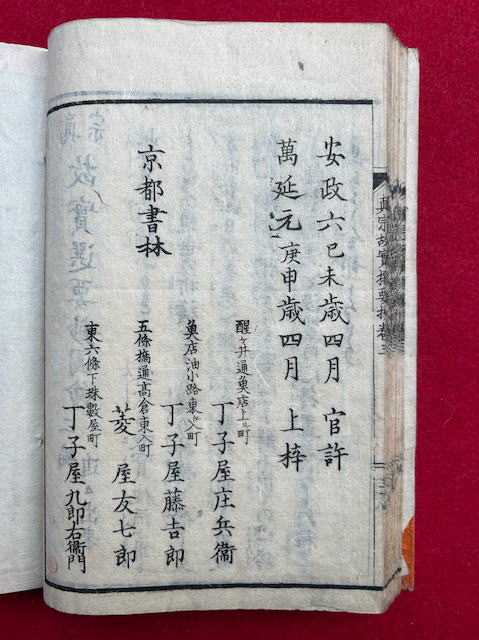 安政六己未歳四月 官許
萬延元庚申歳四月 上梓
京都書林
醒ヶ井通魚店上ル町
丁子屋庄兵衞
魚店油小路東ヘ入町
丁子屋藤吉郎
五條橋通高倉東入町
菱屋友七郎
東六條下珠數屋町
丁子屋九郎右衞門
真宗故實選要抄 卷三